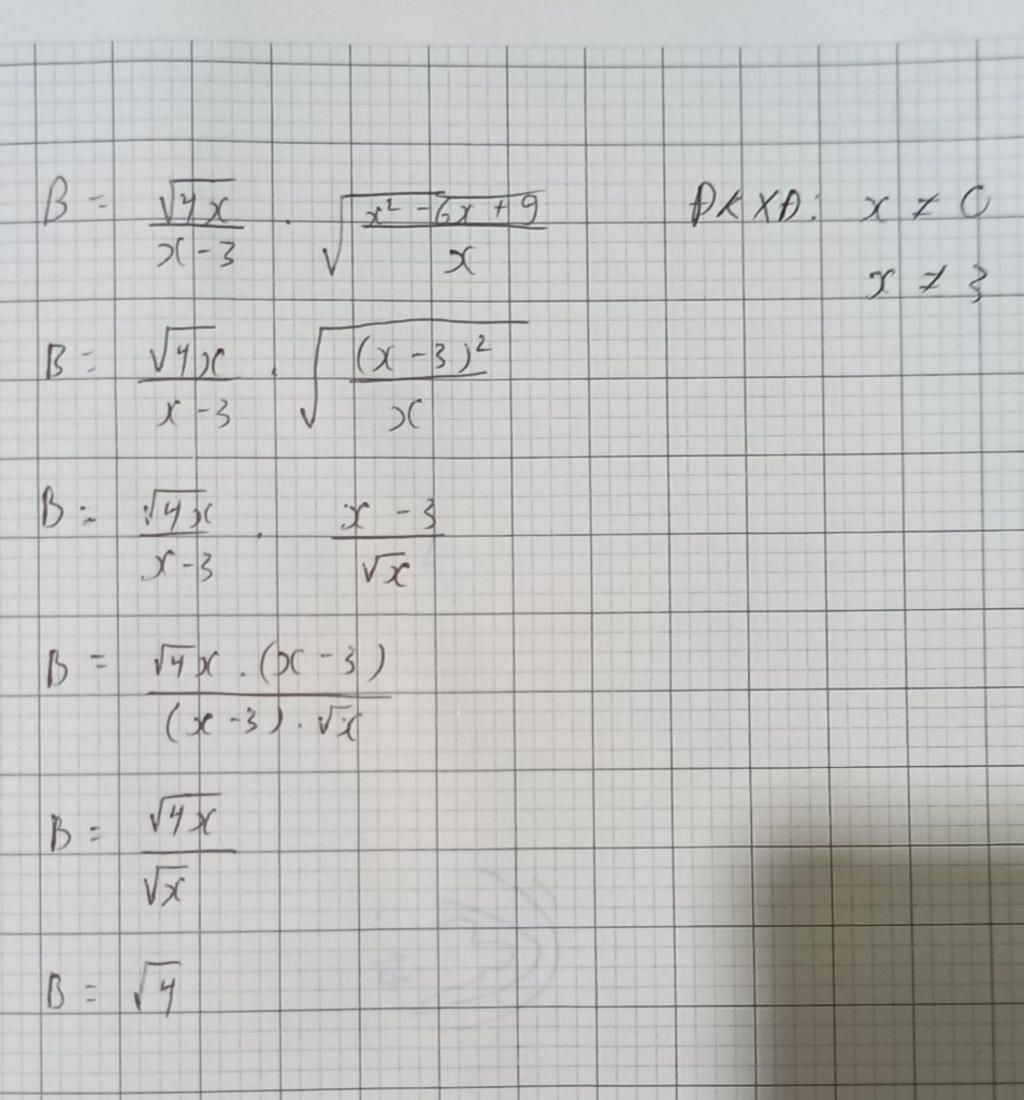 B = √4x / x - 3 . √(x² - 6x + 9 / x) ĐKXĐ: x ≠ 0
x ≠ 3
B = √4x / x - 3 . √((x - 3)² / x)
B = √4x / x - 3 . x - 3 / √x
B = √4x . (x - 3) / (x - 3) . √x
B = √4x / √x
B = √4